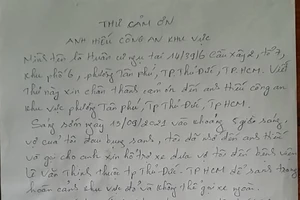 THƯ CẢM ƠN
ANH HIẾU CÔNG AN KHU VỰC
Mình tên là Huân cư ngụ tại 14/39/6 Cầu xây 2, tổ 7,
khu phố 6, phường Tân phú, TP. Thủ Đức, TP.HCM. Viết
thư này xin chân thành cảm ơn đến anh Hiếu công an
khu vực phường Tân phú, TP. Thủ Đức, TP. HCM.
Sáng sớm ngày 13/09/2021 vào khoảng 5 giờ sáng,
vợ của tôi đau bụng sanh, tôi đã nhờ đến anh Hiếu
và gọi cho anh xin hỗ trợ xe đưa vợ tôi đến bệnh viện
Lê Văn Thịnh thuộc tp Thủ Đức. TP HCM để sanh trong
hoàn cảnh khu vực đỏ và không thể gọi xe ngoài.